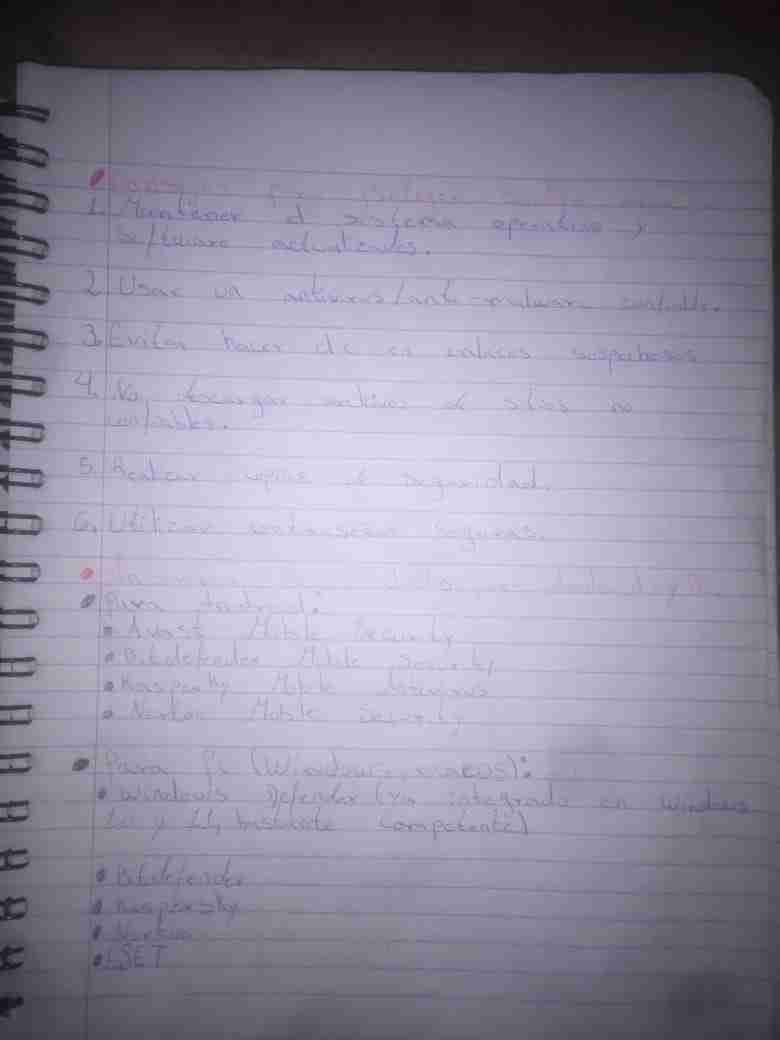 1. Mantener el sistema operativo y
Software actualizados.
2. Usar un antivirus/anti-malware confiable.
3. Evitar hacer clic en enlaces sospechosos
4. No descargar archivos de sitios no
confiables.
5. Realizar copias de seguridad.
6. Utilizar contraseñas seguras.
• Para Android:
• Avast Mobile Security
• Bitdefender Mobile Security
• Kaspersky Mobile Antivirus
• Norton Mobile Security
• Para Pc (Windows, macOS):
• Windows Defender (ya integrado en windows
10 y 11, bastante competente)
• Bitdefender
• Kaspersky
• Norton
• ESET